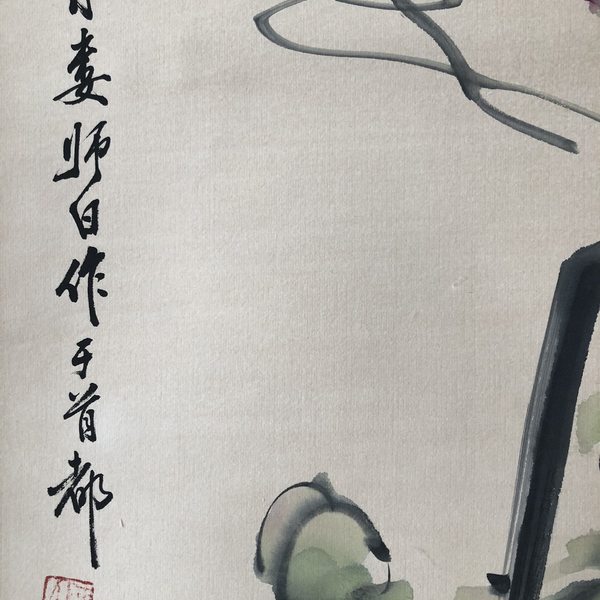 娄师白作于首都